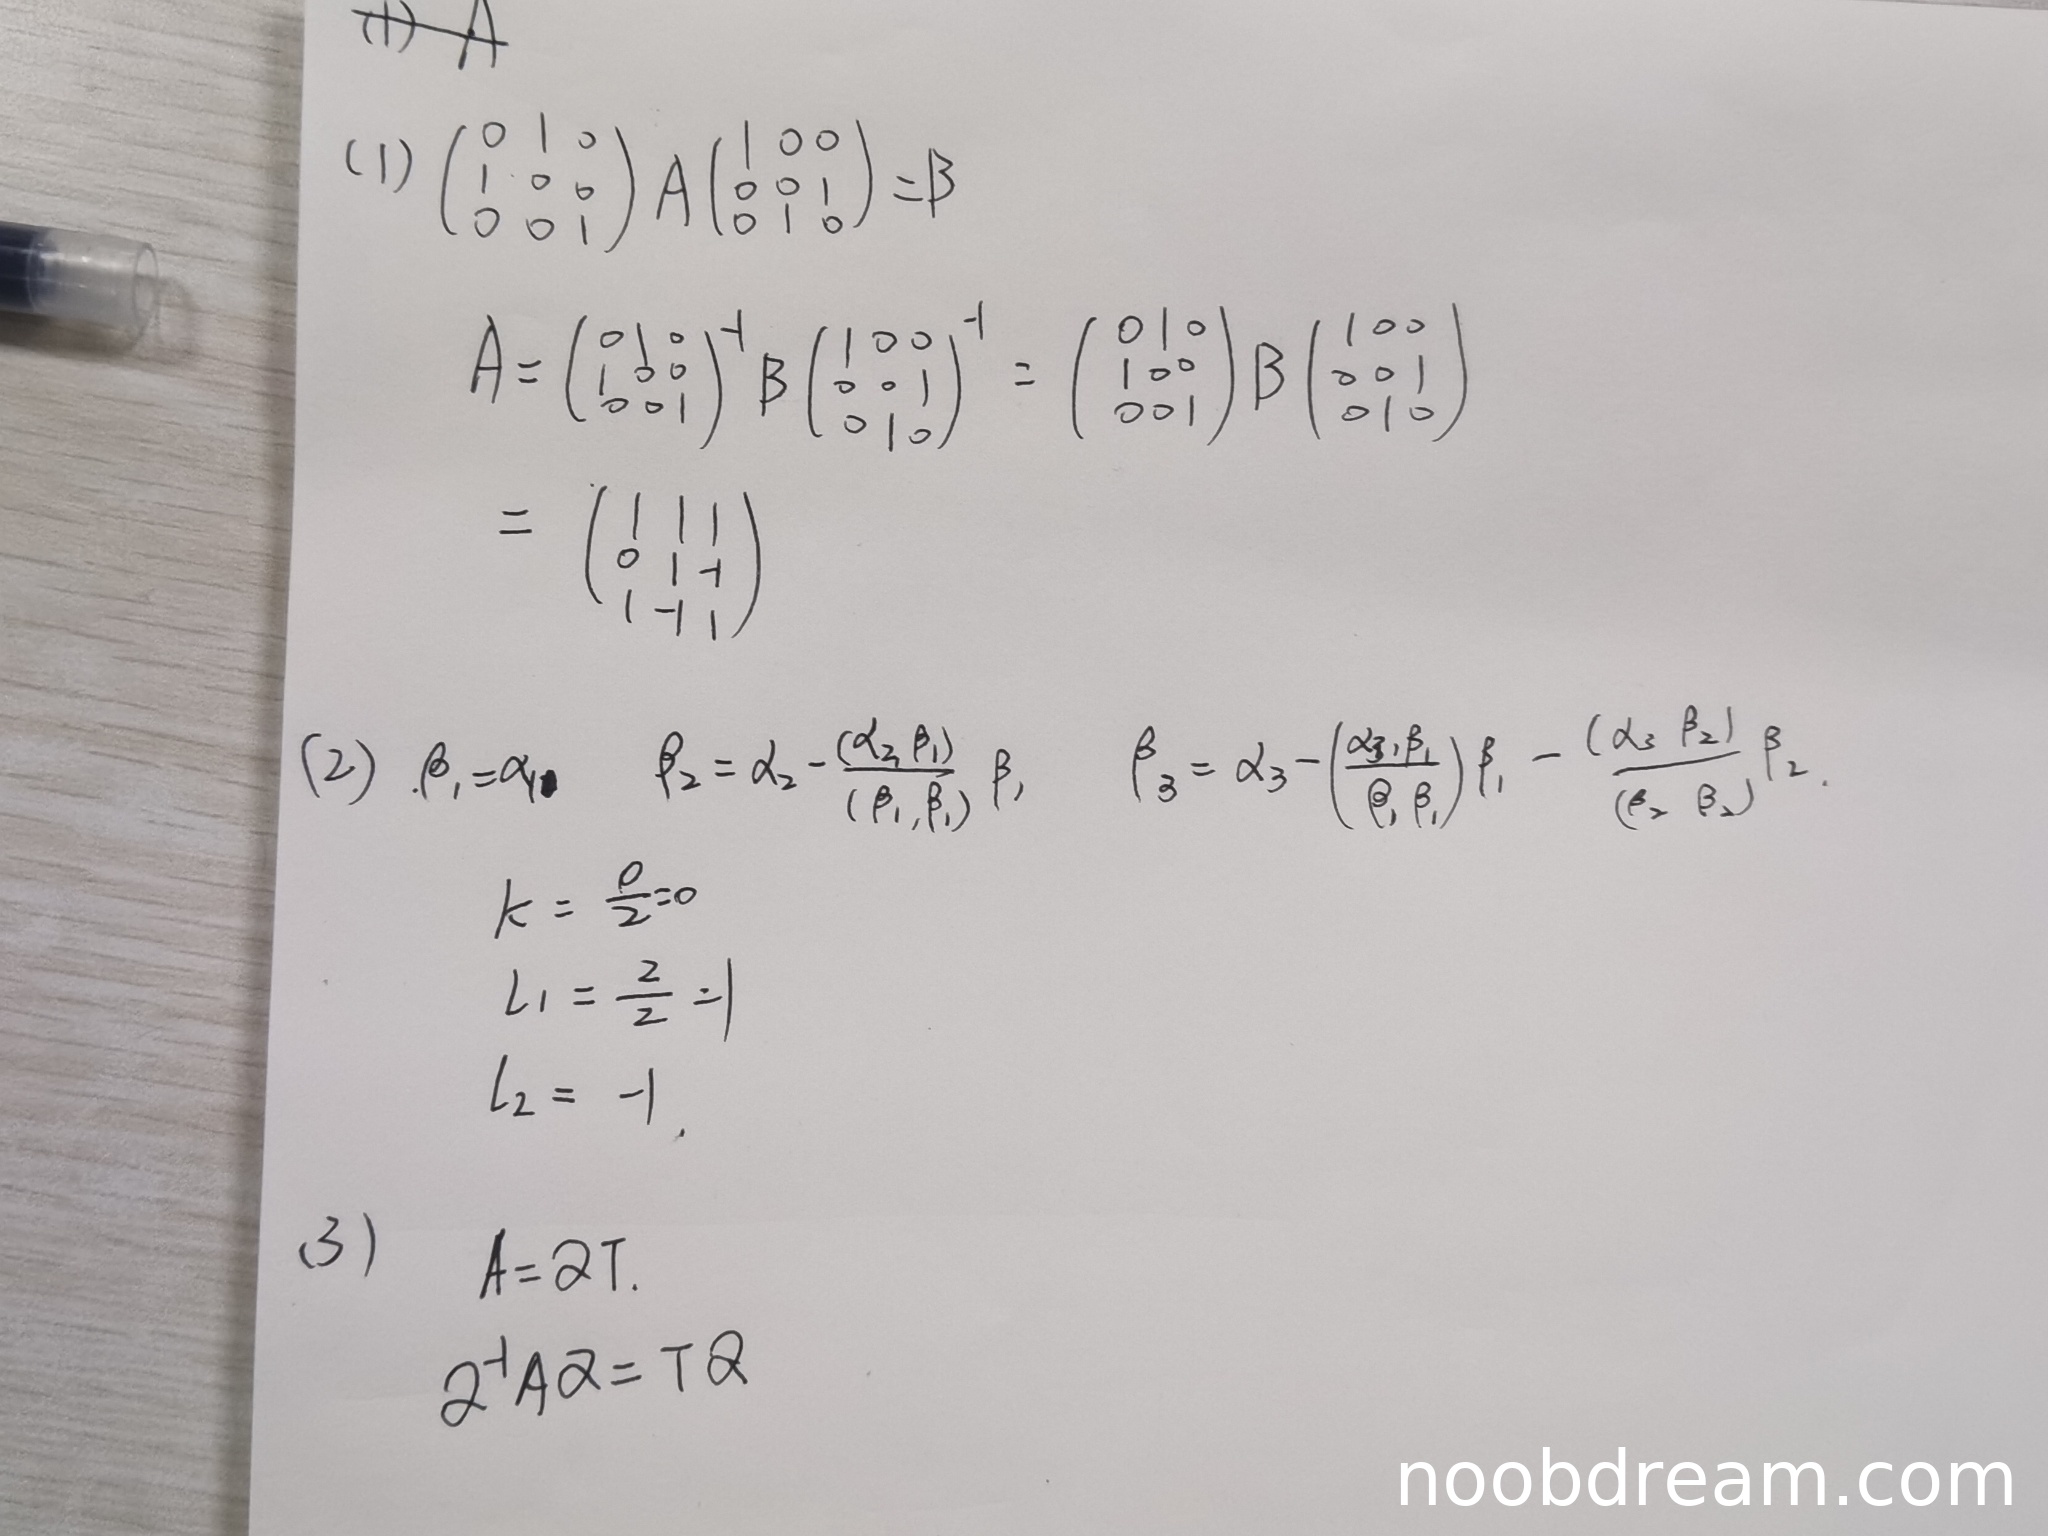 (1) A
(1) (0 1 0 / 1 0 0 / 0 0 1) A (1 0 0 / 0 0 1 / 0 1 0) = B
A = (0 1 0 / 1 0 0 / 0 0 1)⁻¹ B (1 0 0 / 0 0 1 / 0 1 0)⁻¹ = (0 1 0 / 1 0 0 / 0 0 1) B (1 0 0 / 0 0 1 / 0 1 0)
= (1 1 1 / 0 1 -1 / 1 -1 1)
(2) β₁ = α₁ β₂ = α₂ - (α₂, β₁)/(β₁, β₁) β₁ β₃ = α₃ - (α₃, β₁ / β₁ β₁) β₁ - (α₃ β₂)/(β₂ β₂) β₂.
k = 0/2 = 0
l₁ = 2/2 = 1
l₂ = -1.
(3) A = QT.
Q⁻¹AQ = TQ
noobdream.com